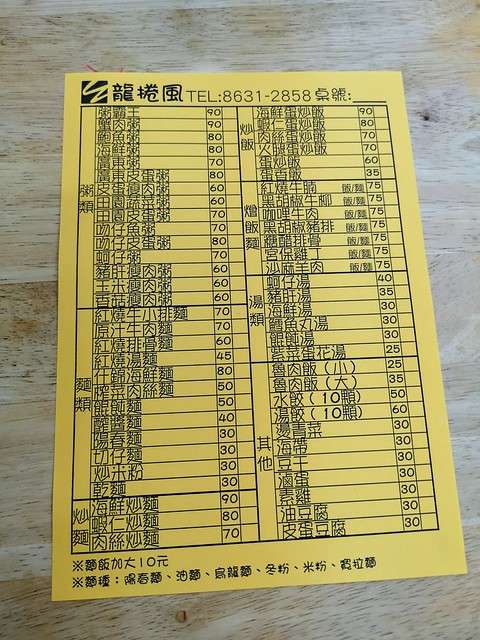 龍捲風 TEL:8631-2858 桌號:
粥類
粥霸王 90
蟹肉粥 90
鯛魚粥 80
海鮮粥 80
廣東粥 70
廣東皮蛋粥 80
皮蛋瘦肉粥 60
田園蔬菜粥 60
田園皮蛋粥 60
吻仔魚粥 70
吻仔皮蛋粥 80
蚵仔粥 70
豬肝瘦肉粥 60
玉米瘦肉粥 60
香菇瘦肉粥 60
麵類
紅燒牛小排麵 70
原汁牛肉麵 70
紅燒排骨麵 60
紅燒湯麵 45
什錦海鮮麵 80
榨菜肉絲麵 50
餛飩麵 50
醡醬麵 40
陽春麵 30
切仔麵 30
炒米粉 30
乾麵 30
炒麵
海鮮炒麵 90
蝦仁炒麵 80
肉絲炒麵 70
炒飯
海鮮蛋炒飯 90
蝦仁蛋炒飯 80
肉絲蛋炒飯 70
火腿蛋炒飯 70
蛋炒飯 60
蛋香飯 35
燴飯麵
紅燒牛腩 飯/麵 75
黑胡椒牛柳 飯/麵 75
咖哩牛肉 飯/麵 75
黑胡椒豬排 飯/麵 75
糖醋排骨 飯/麵 75
宮保雞丁 飯/麵 75
沙茶羊肉 飯/麵 75
湯類
蚵仔湯 40
豬肝湯 35
海鮮湯 30
鱈魚丸湯 30
餛飩湯 30
紫菜蛋花湯 25
其他
魯肉飯(小) 25
魯肉飯(大) 35
水餃(10顆) 50
湯餃(10顆) 60
燙青菜 30
海帶 30
豆干 30
滷蛋
素雞 30
油豆腐 30
皮蛋豆腐 30
※麵飯加大10元
※麵種：陽春麵、油麵、烏龍麵、冬粉、米粉、寬拉麵